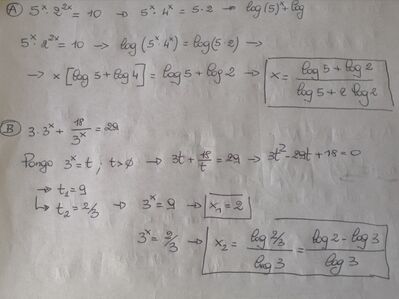 A 5^x · 2^2x = 10 → 5^x · 4^x = 5·2 → log(5)^x + log
5^x · 2^2x = 10 → log(5^x · 4^x) = log(5·2) →
→ x[log 5 + log 4] = log 5 + log 2 → x = (log 5 + log 2)/(log 5 + 2 log 2)
B 3·3^x + 18/3^x = 29
Pongo 3^x = t ; t>0 → 3t + 18/t = 29 → 3t^2 - 29t + 18 = 0
→ t₁ = 9
↳ t₂ = 2/3 → 3^x = 9 → x₁ = 2
3^x = 2/3 → x₂ = (log 2/3)/(log 3) = (log 2 - log 3)/(log 3)